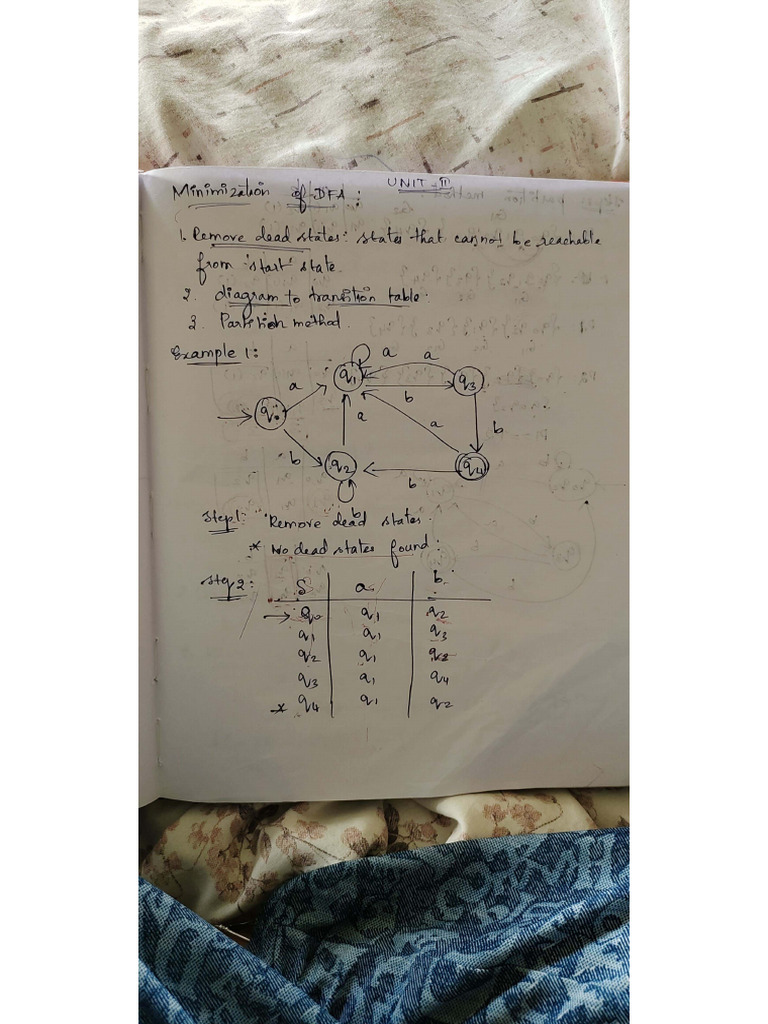 UNIT - II
Minimization of DFA:
1. Remove dead states: states that cannot be reachable
from 'start' state.
2. diagram to transition table.
3. Partition method.
Example 1:
a
a
q1
q3
a
b
q0
a
a
b
b
q2
q4
b
b
Step1: Remove dead states.
* No dead states found:
Step 2:
S a b
→ q0 q1 q2
q1 q1 q3
q2 q1 q2
q3 q1 q4
* q4 q1 q2